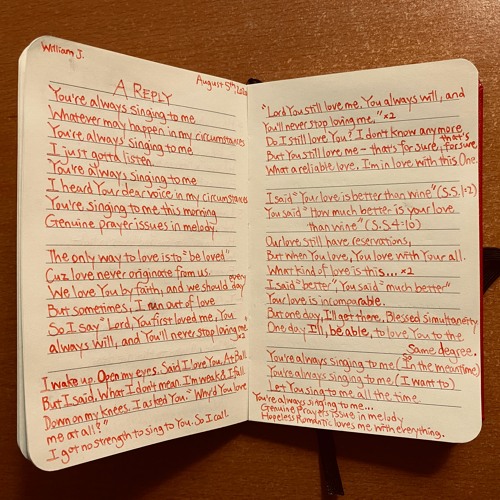 William J.
August 5th
A REPLY
You're always singing to me
Whatever may happen in my circumstances
You're always singing to me
I just gotta listen
You're always singing to me
I heard Your dear voice, in my circumstances
You're singing to me this morning
Genuine prayer issues in melody.
The only way to love is to "be loved"
Cuz love never originate from us.
We love You by faith, and we should, every day
But sometimes, I run out of love
So I say "Lord, You first loved me, You
always will, and You'll never stop loving me" x2
I wake up. Open my eyes. Said I love You. At Ball
But I said. What I don't mean. I'm weak. I fall
Down on my knees. I asked You." Why'd You love
me at all?"
I got no strength to sing to You. So I call.
"Lord You still love me. You always will, and
You'll never stop loving me," x2
Do I still love You? I don't know anymore
But You still love me - that's for sure, that's for sure
What a reliable love. I'm in love with this One.
I said "Your love is better than wine" (S.S.1:2)
You said "How much better is your love
than wine" (S.S.4:10)
Our love still have reservations,
But when You love, You love with Your all.
What kind of love is this... x2
I said "better", You said "much better"
Your love is incomparable.
But one day, I'll get there. Blessed simultaneity
One day I'll, be able, to love You to the
Same degree.
You're always singing to me (So in the meantime)
You're always singing to me (I want to)
Let You sing to me all the time
You're always singing to me...
Genuine Prayers issue in melody
Hopeless Romantic loves me with everything.